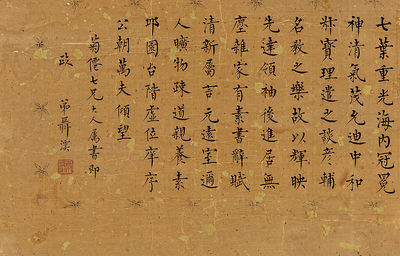 七葉重光海內冠冕
神清氣茂允迪中和
叔寶理遣之談彥輔
名教之樂故以輝映
先達領袖後進居無
塵雜家有素書辭賦
清新屬言元遠室邇
人曠物疎道親養素
邱園台階虛位庠序
公朝萬夫傾望
菊僊七兄大人屬書即
政 弟聶